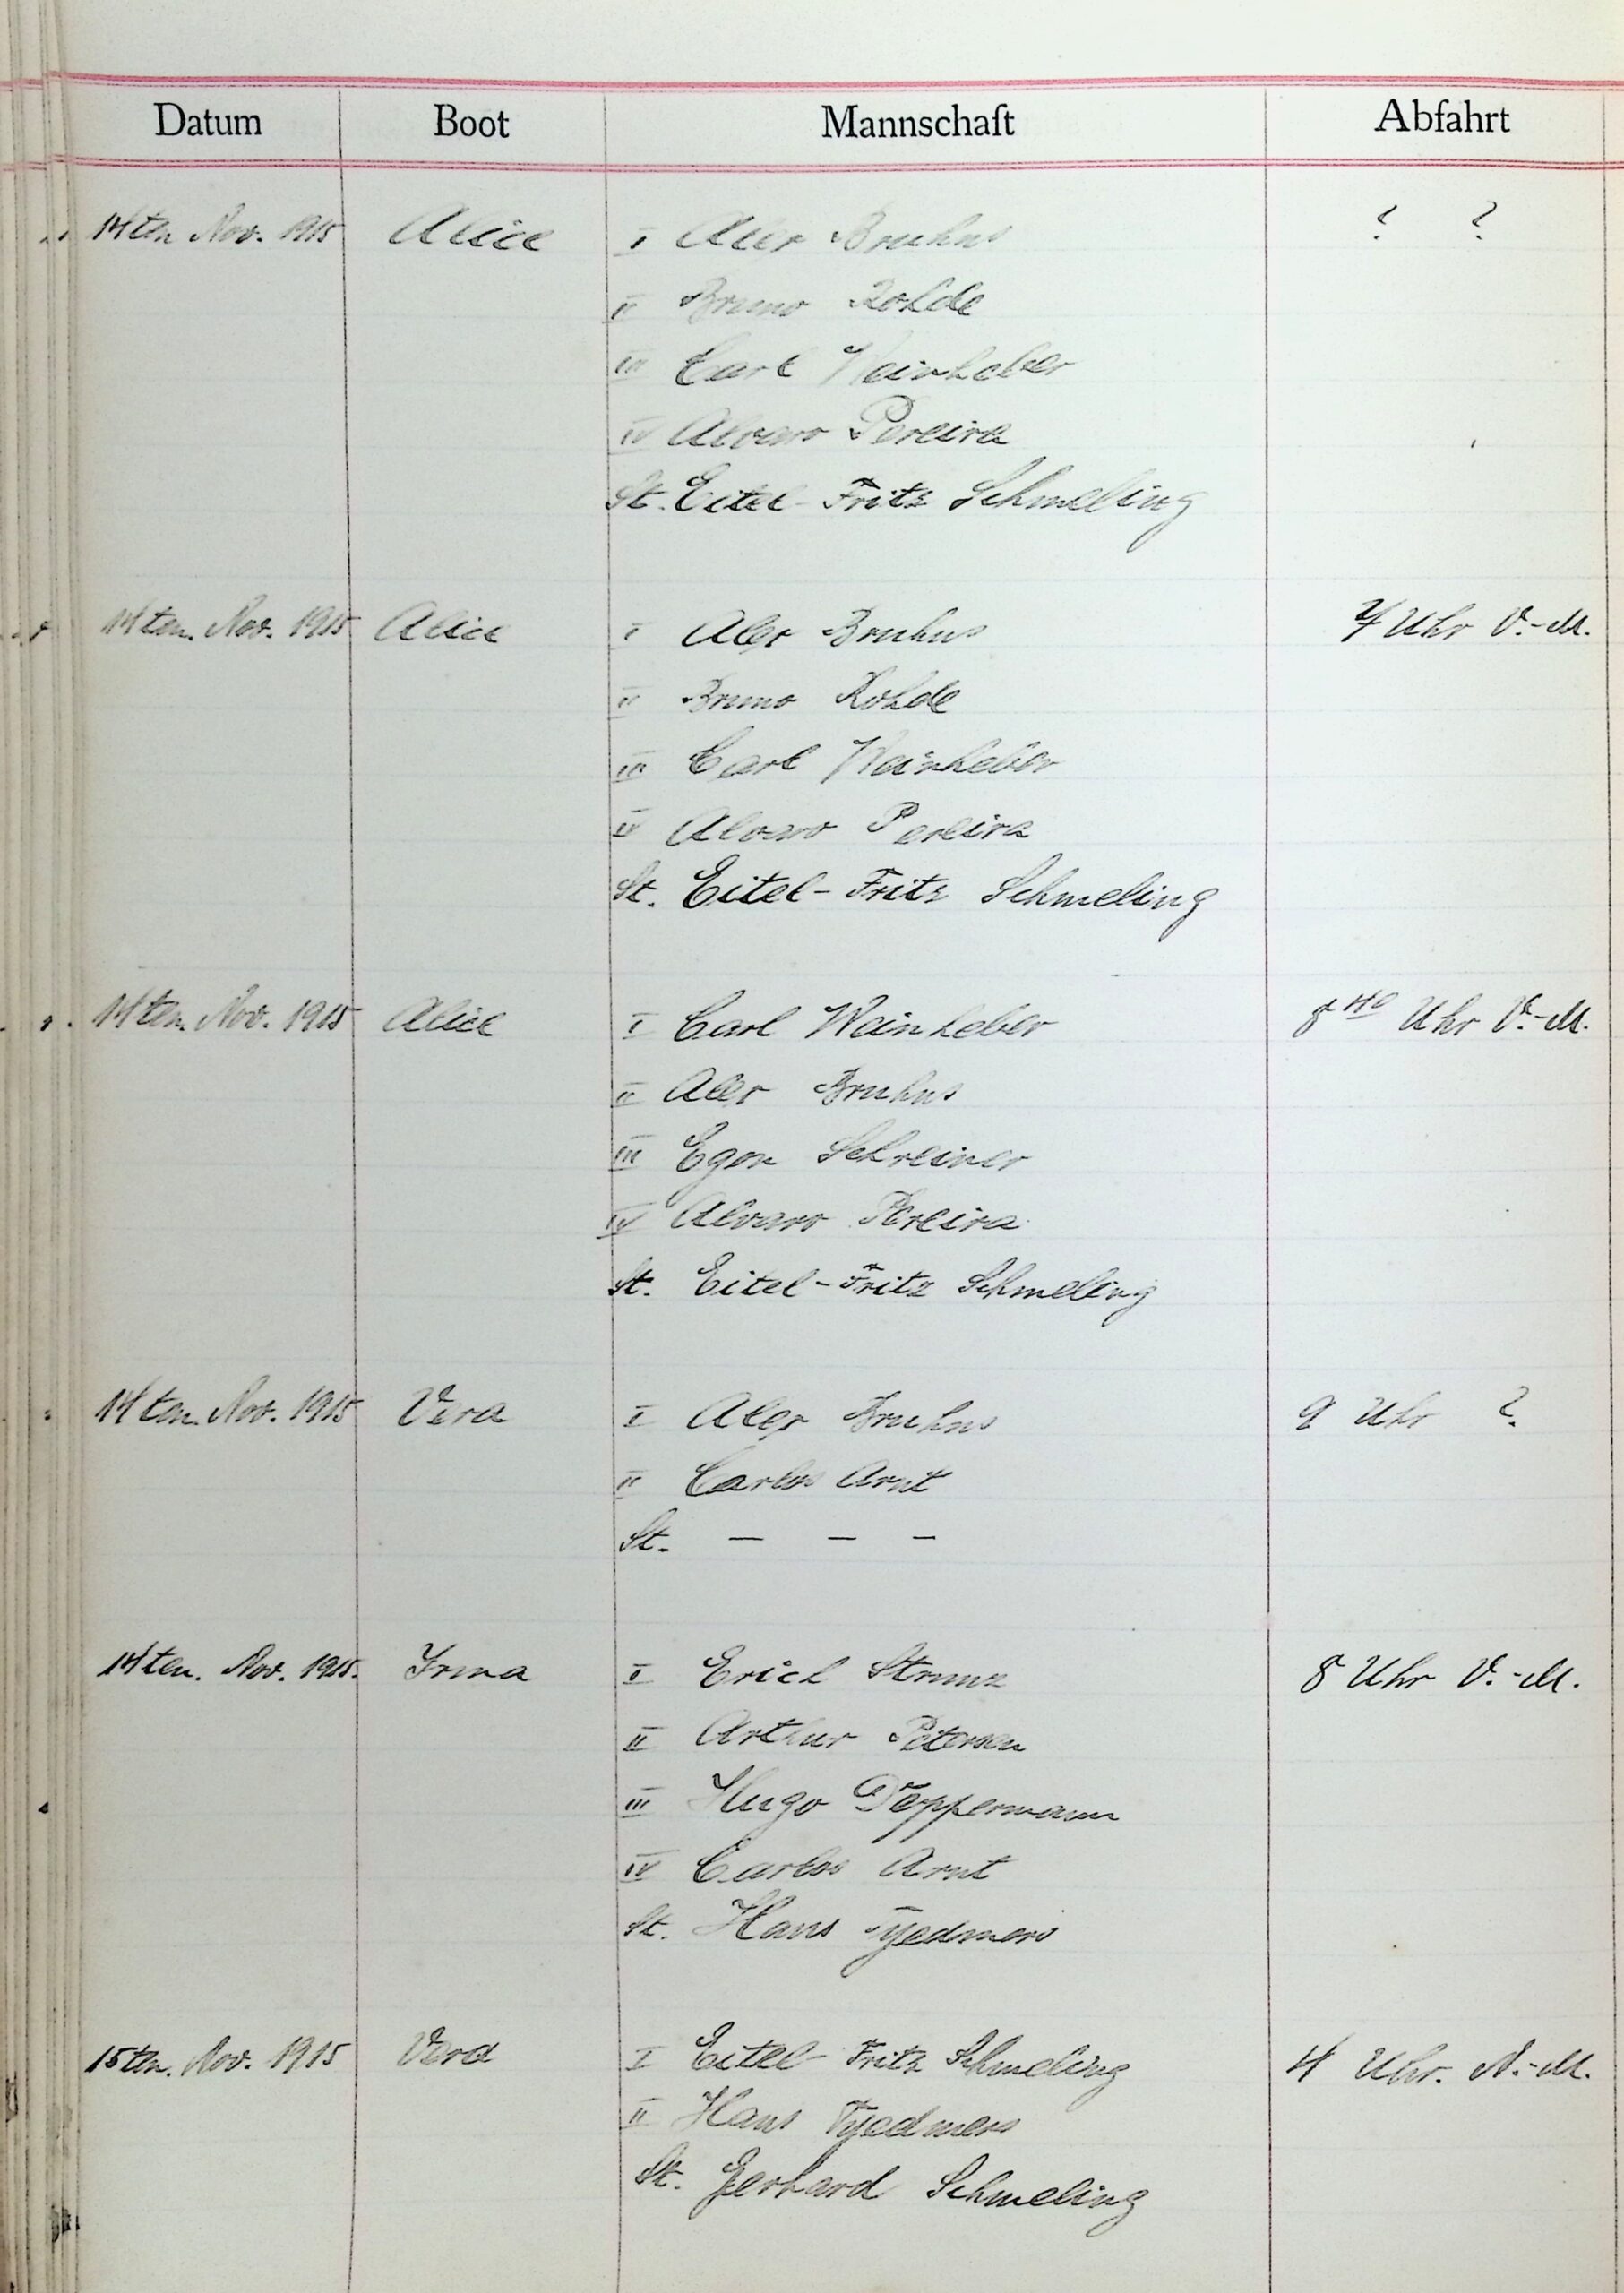 Datum Boot Mannschaft Abfahrt
14ten Nov. 1915 Alice I Alex Bruhns ? ?
II Bruno Rohde
III Carl Weinheber
IV Alvaro Pereira
St. Eitel-Fritz Schmeling
14ten. Nov. 1915 Alice I Alex Bruhns Uhr V.-M.
II Bruno Rohde
III Carl Weinheber
IV Alvaro Pereira
St. Eitel-Fritz Schmeling
14ten. Nov. 1915 Alice I Carl Weinheber 8 40 Uhr V.-M.
II Alex Bruhns
III Egon Schreiner
IV Alvaro Pereira
St. Eitel-Fritz Schmeling
14ten. Nov. 1915 Vera I Alex Bruhns 9 Uhr ?
II Carlos Arnt
St. — — —
14ten. Nov. 1915. Irma I Erich Strunz 8 Uhr V.-M.
II Arthur Petersen
III Hugo Deppermann
IV Carlos Arnt
St. Hans Tjedmers
15ten. Nov. 1915 Vera I Eitel-Fritz Schmeling 4 Uhr. N.-M.
II Hans Tjedmers
St. Gerhard Schmeling